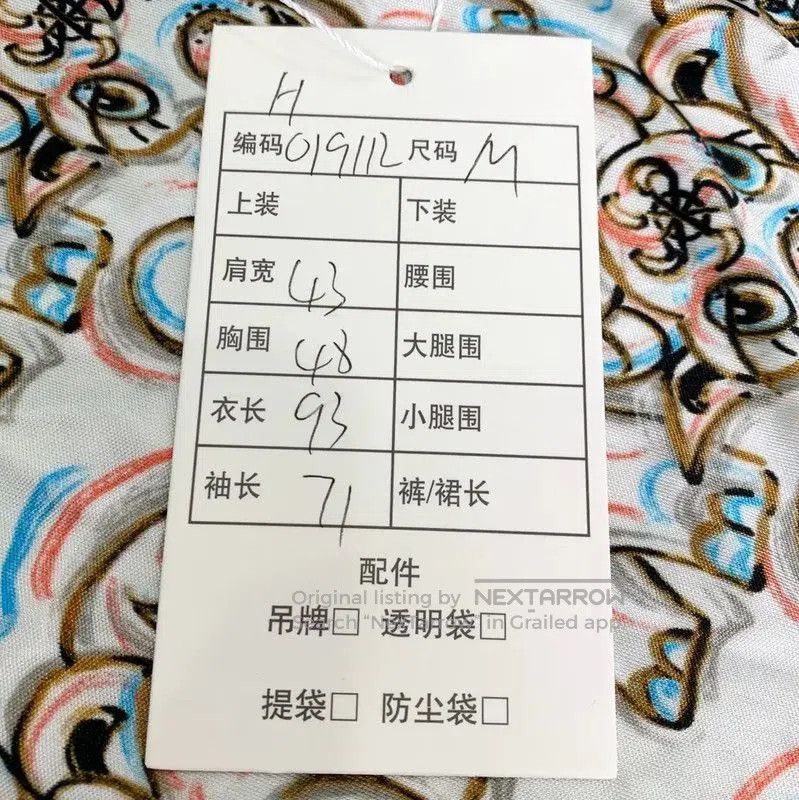 H
编码 019112 尺码 M
上装 下装
肩宽 43 腰围
胸围 48 大腿围
衣长 93 小腿围
袖长 71 裤/裙长
配件
Original listing by NEXTARROW
吊牌□ 透明袋□
in Grailed app
提袋□ 防尘袋□